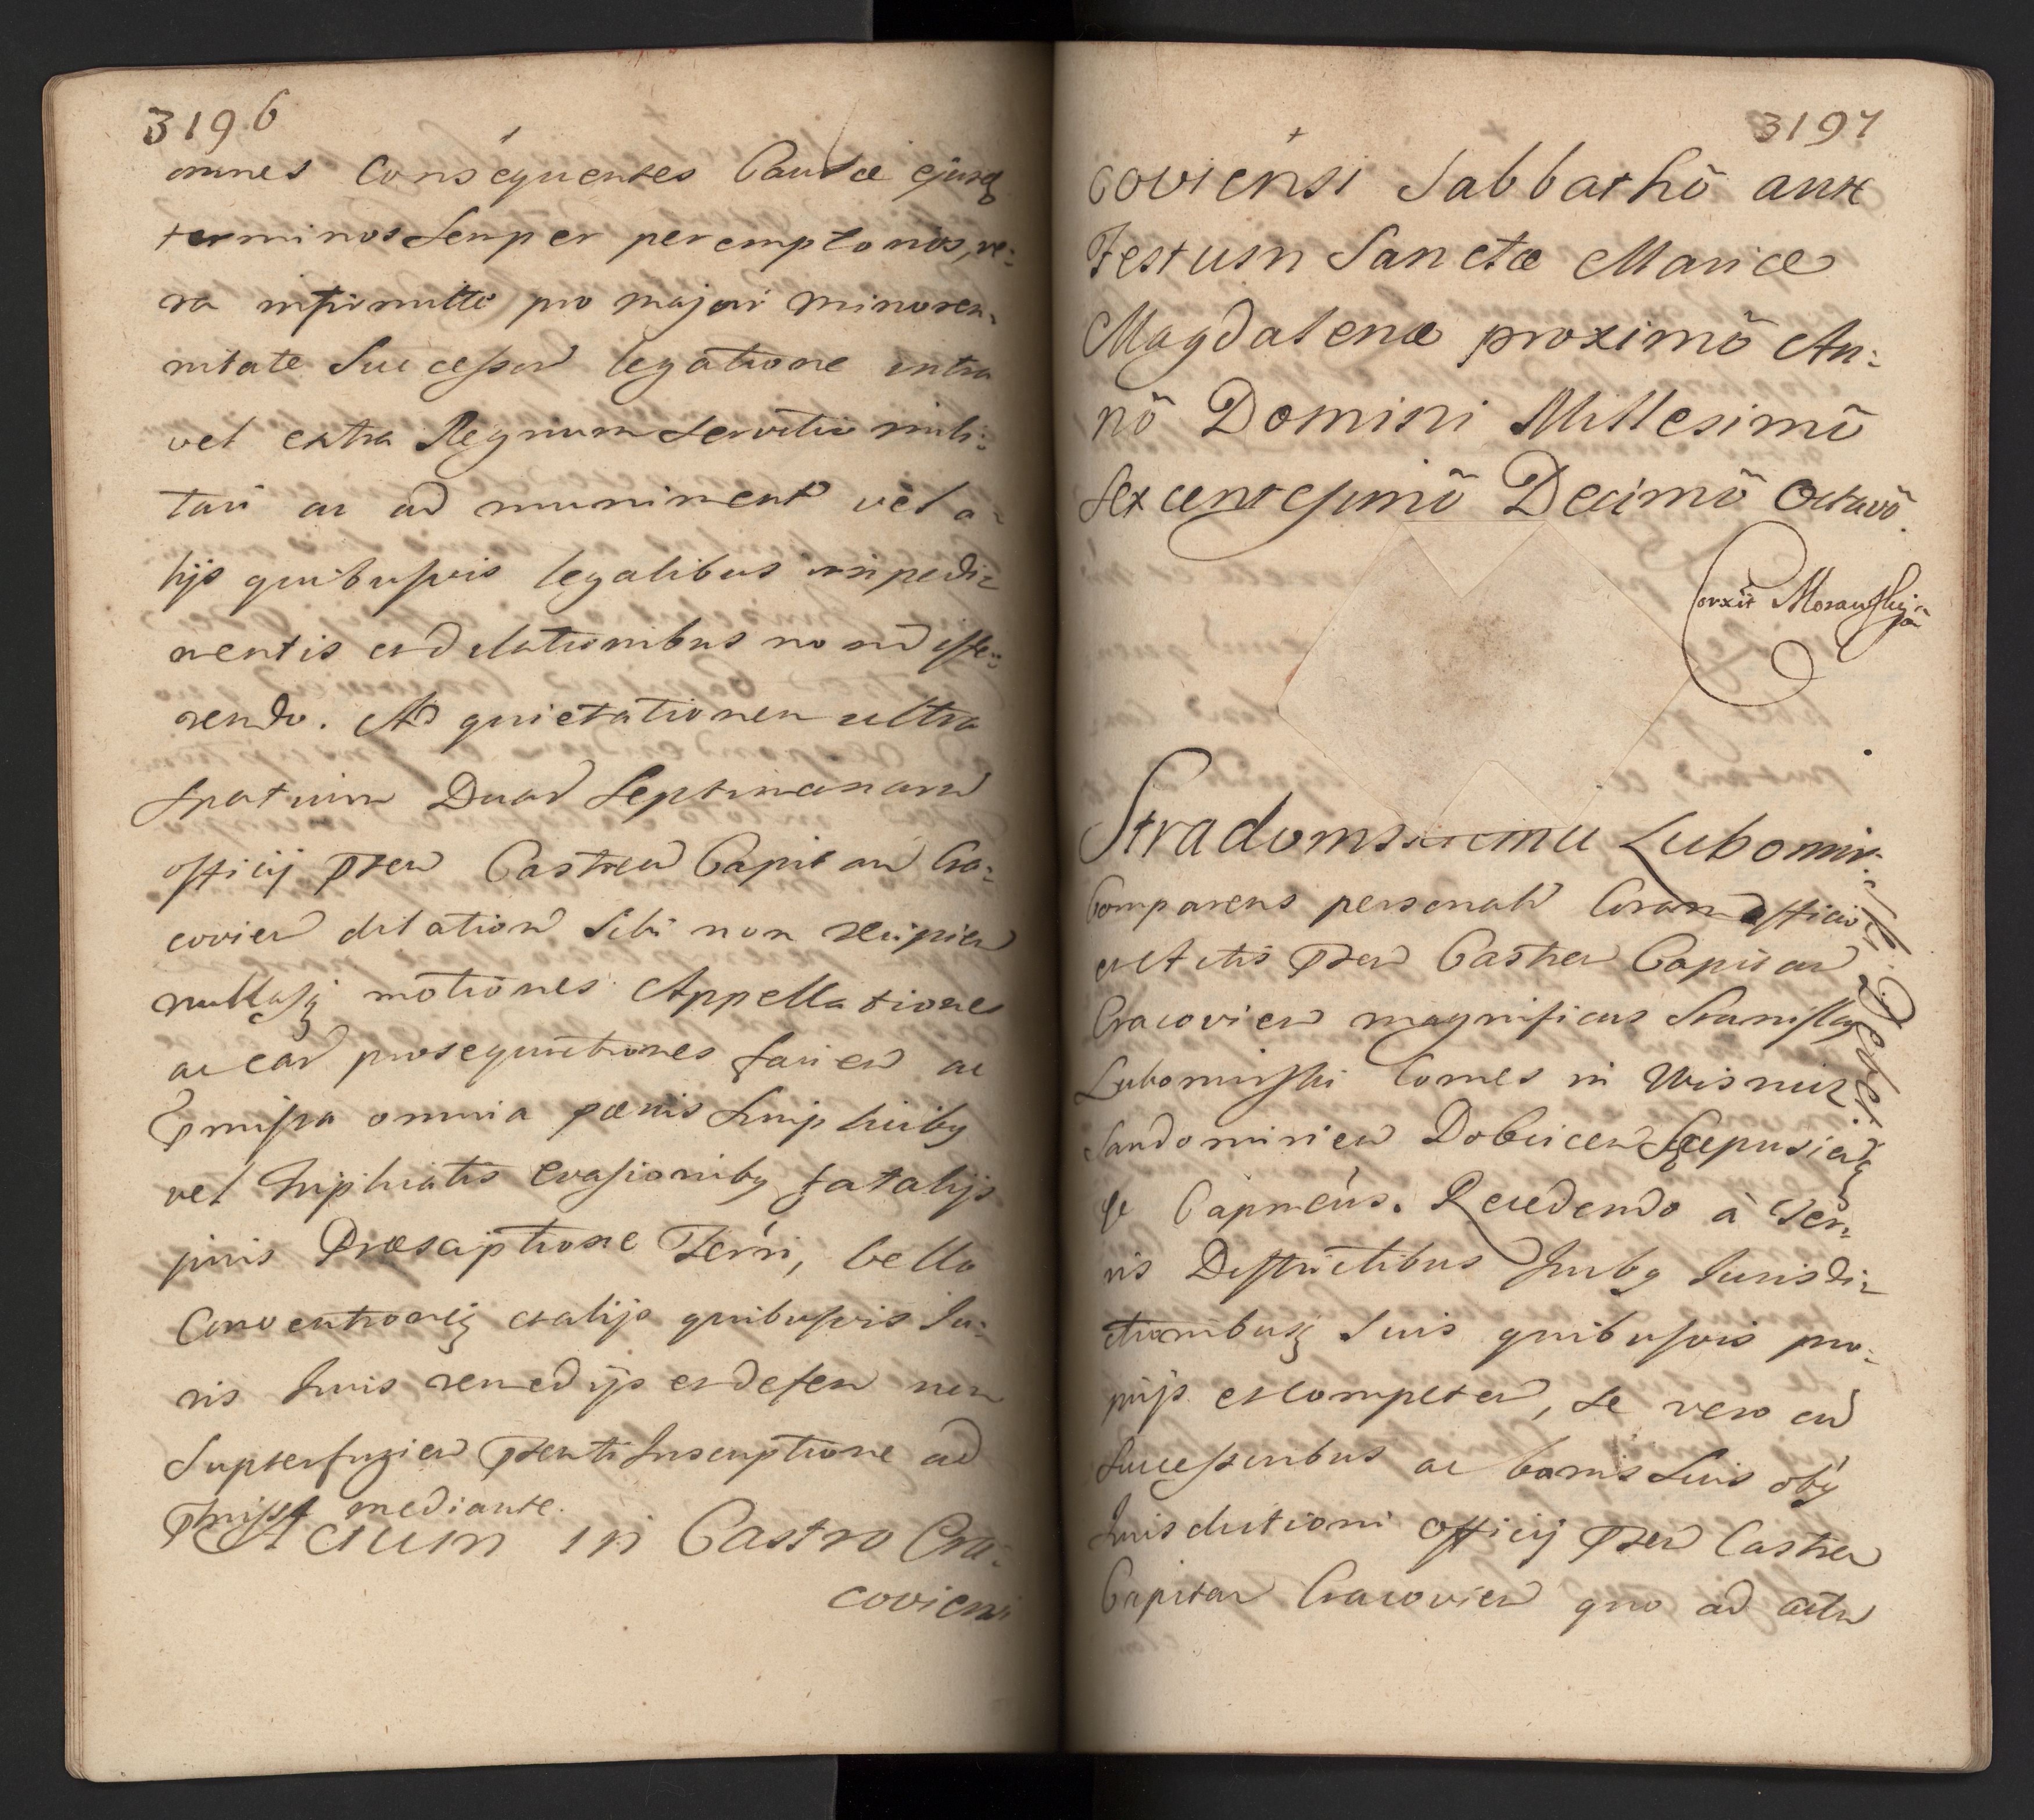 3196
omnes Consequentes Causæ ejusq
terminos Semper peremptorios, ve:
ra infirmitte pro majori minoren:
nitate Successorū legatione intra
vel extra Regnum Servitio mili:
tari ac ad muniment vel a:
lijs quibusvis legalibus impedi:
mentis ac dilationibus non diffe:
rendo. Ad quietationem ultra
spatium Duarū Septimanarū
officij pnten Castren Capitan Cra:
covien dilationē sibi non recipien
nullasq motiones Appellationes
ac earū prosequutiones facien ac
præmissa omnia pænis Simplicibq
vel triplicatis evasionibq fatalijs
juris Præscriptione Terri, bello
Conventioneq ac alijs quibusvis Ju:
ris Juvis remedijs ac defen non
Supterfugien pnti Inscriptione ad
præmissa mediante.
Actum in Castro Cra:
coviensi
3197
coviensi Sabbathô ante
Festum Sanctæ Mariæ
Magdalenæ proximô An:
nô Domini Millesimô
Sexcentesimô Decimô Octavô.
Corxit Morawskij
Stradomskiemu Lubomir:
ski
Comparens personalr Coram officio
et Actis pnten Castren Capitan
Cracovien magnificus Stanislaq
Lubomirski Comes in Wisnicz
Sandomirien Dobcicen Scepusien
q Capneus. Recedendo à Ter:
ris Districtibus Juribq Jurisdi:
ctionibusq suis quibusvis pro:
prijs et competen, se vero cū
Successoribus ac bonis suis oībq
Jurisdictioni officij pnten Castren
Capitan Cracovien quo ad actū